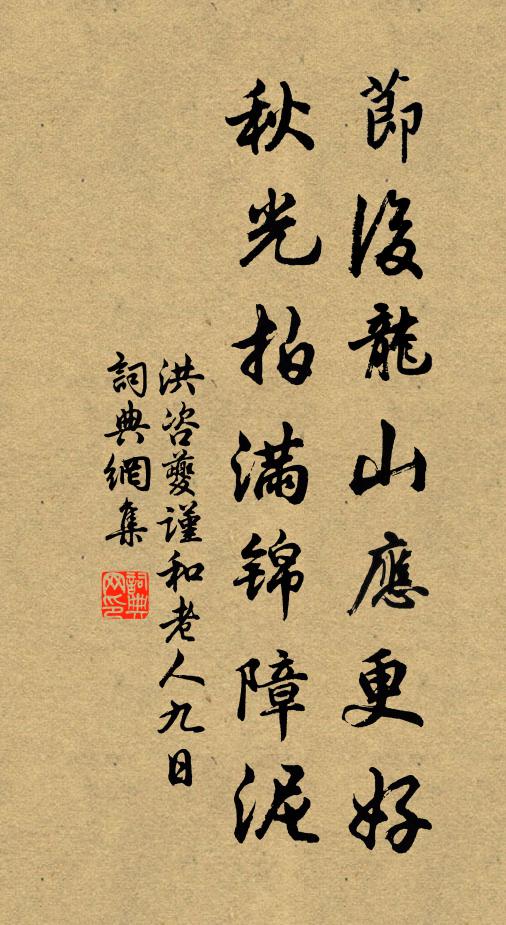 節後龍山應更好
秋光拍滿錦障泥
洪咨夔謹和老人九日
詞典網集
詞典
网印